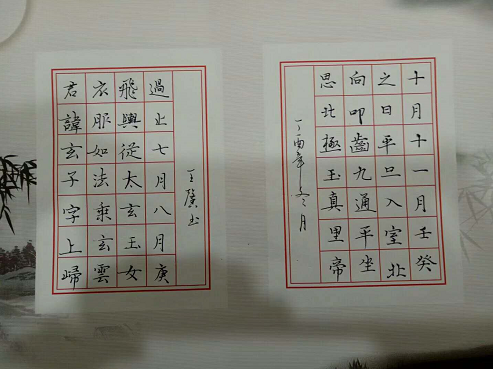 十月十一月壬癸
之日平旦入室北
向叩齒九通平坐
思北極玉真里帝
丁酉年冬月
過止七月八月庚
飛輿從太玄玉女
衣服如法乘玄雲
君諱玄子字上歸
王廣书